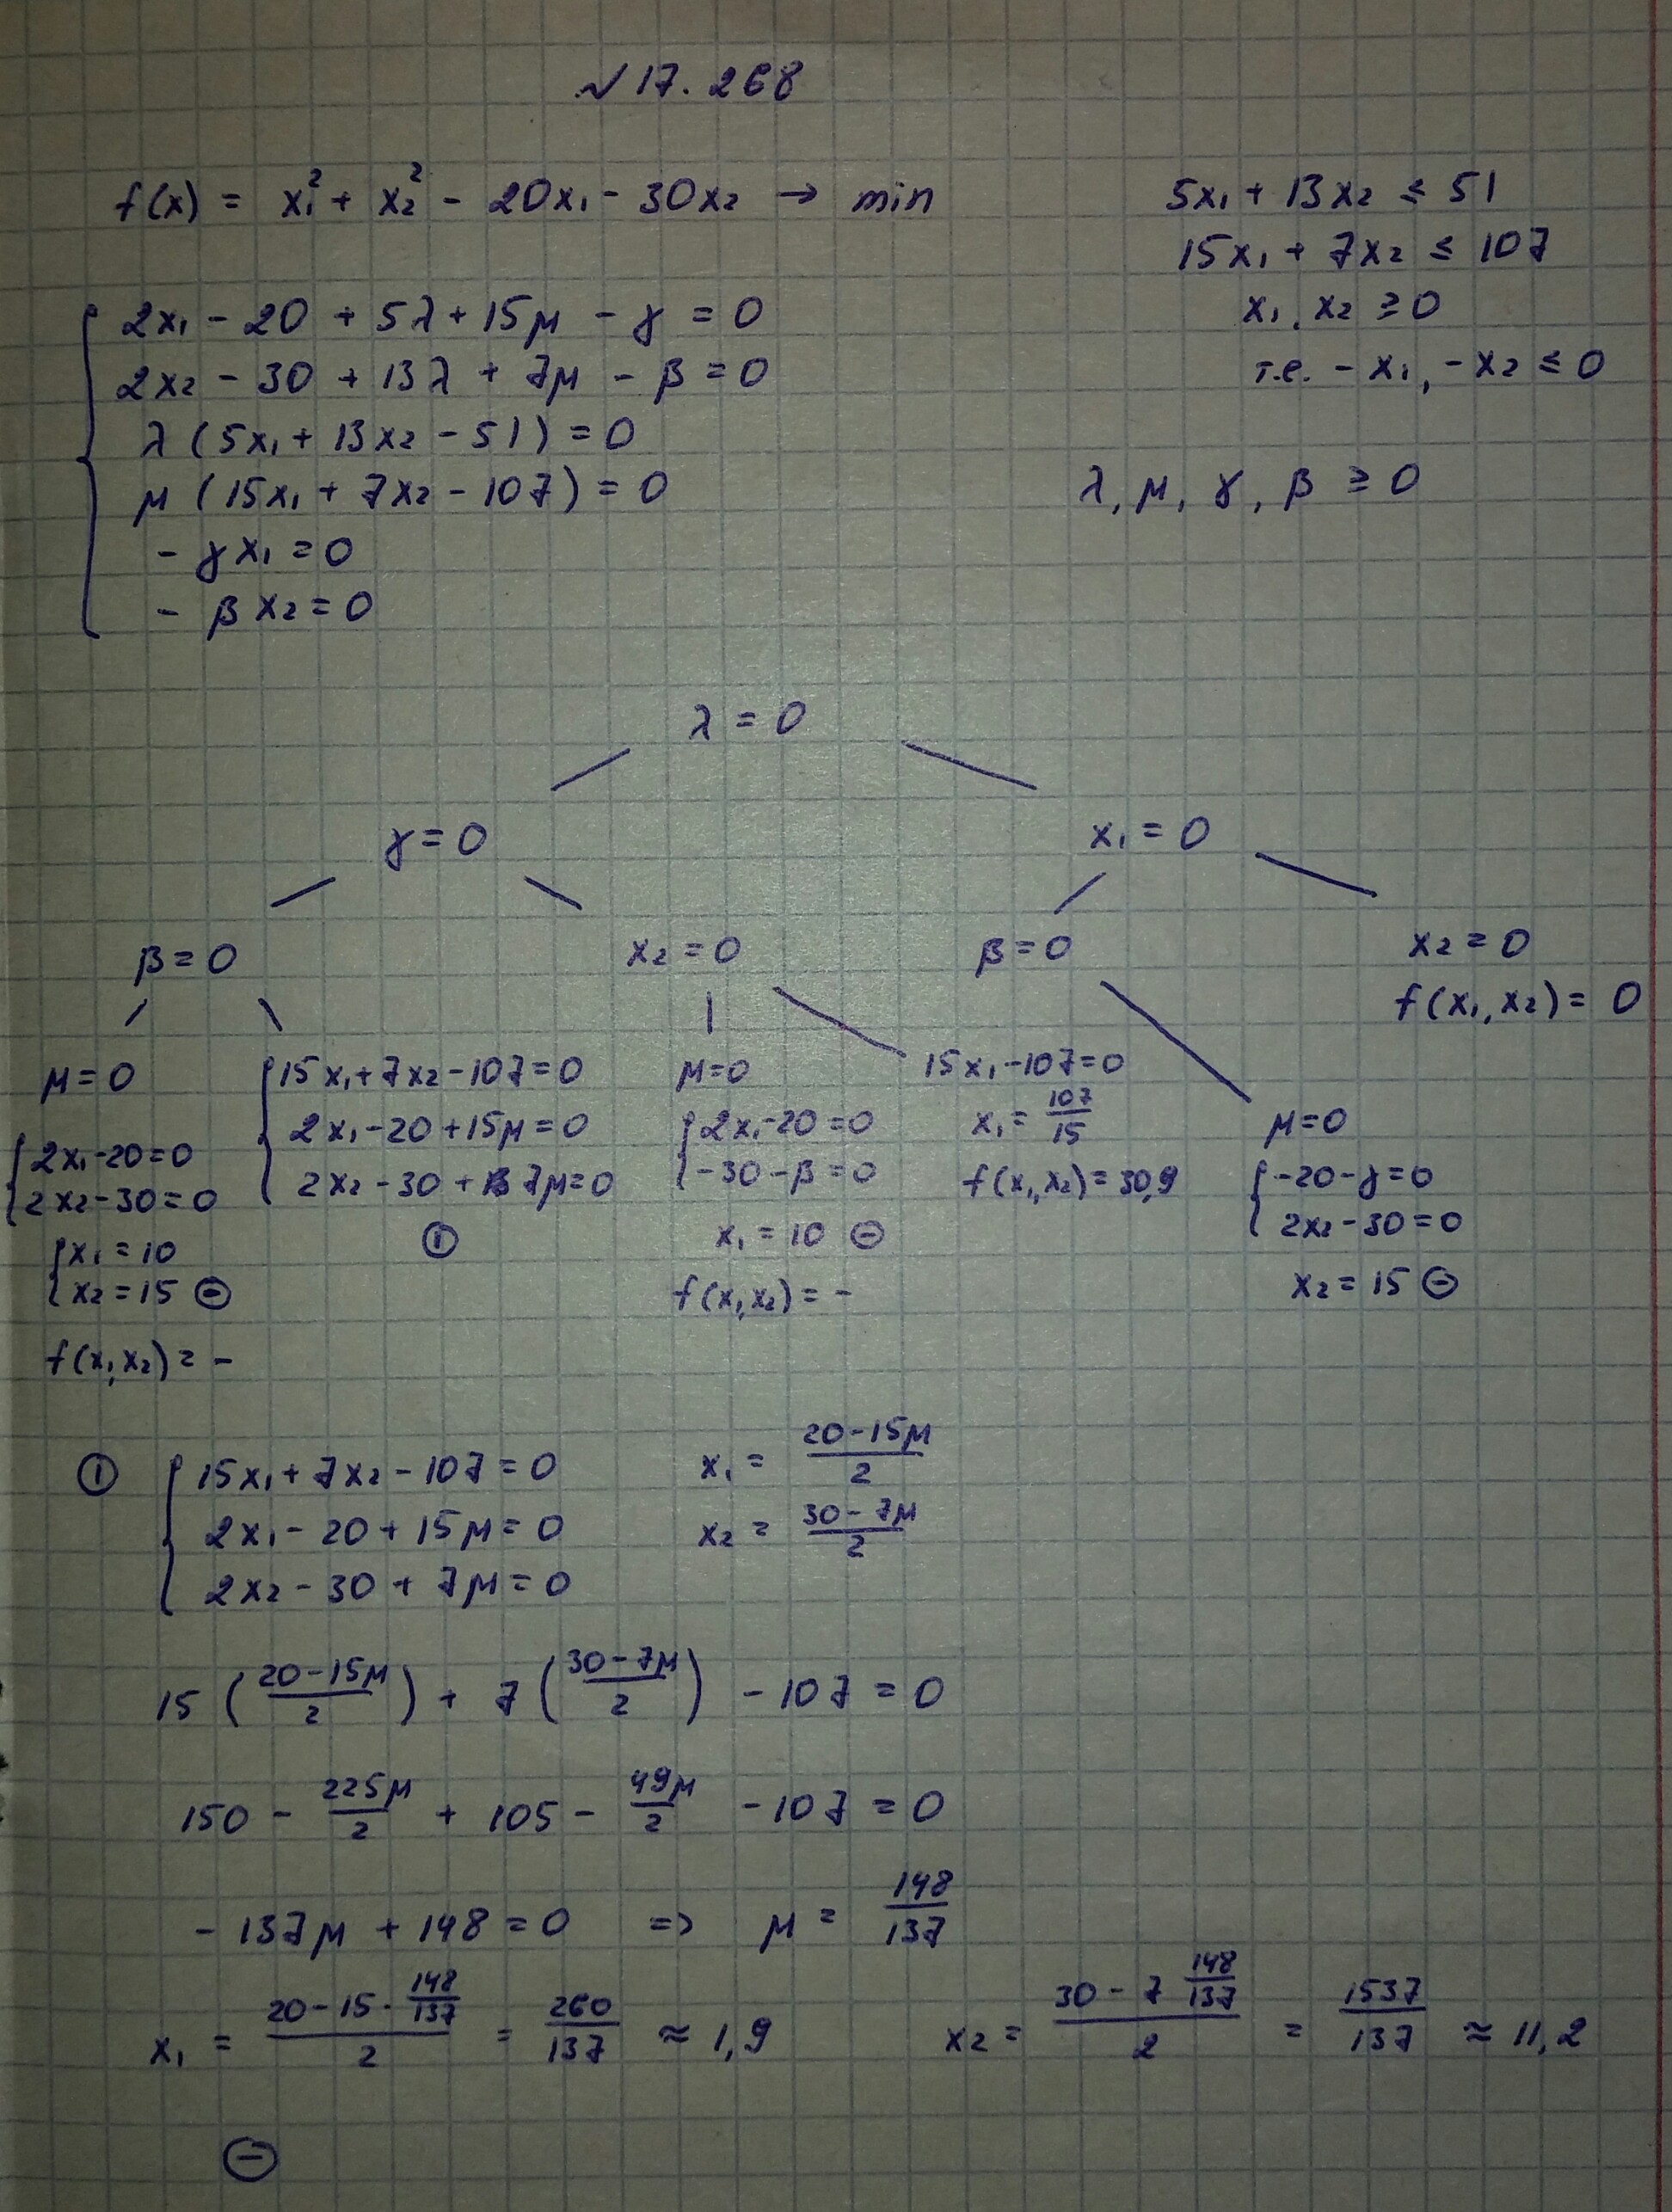 √ 17. 268
f(x) = x₁² + x₂² - 20x₁ - 30x₂ → min
5x₁ + 13x₂ ≤ 51
15x₁ + 7x₂ ≤ 107
x₁, x₂ ≥ 0
т.е. - x₁, - x₂ ≤ 0
2x₁ - 20 + 5λ + 15μ - γ = 0
2x₂ - 30 + 13λ + 7μ - β = 0
λ (5x₁ + 13x₂ - 51) = 0
μ (15x₁ + 7x₂ - 107) = 0
- γx₁ = 0
- βx₂ = 0
λ, μ, γ, β ≥ 0
λ = 0
γ = 0
x₁ = 0
β = 0
x₂ = 0
β = 0
x₂ = 0
f(x₁, x₂) = 0
μ = 0
2x₁ - 20 = 0
2x₂ - 30 = 0
x₁ = 10
x₂ = 15 ⊖
f(x₁, x₂) = -
15x₁ + 7x₂ - 107 = 0
2x₁ - 20 + 15μ = 0
2x₂ - 30 + 7μ = 0
①
μ = 0
2x₁ - 20 = 0
-30 - β = 0
x₁ = 10 ⊖
f(x₁, x₂) = -
15x₁ - 107 = 0
x₁ = 107/15
f(x₁, x₂) = 30,9
μ = 0
-20 - γ = 0
2x₂ - 30 = 0
x₂ = 15 ⊖
①
15x₁ + 7x₂ - 107 = 0
2x₁ - 20 + 15μ = 0
2x₂ - 30 + 7μ = 0
x₁ = (20 - 15μ)/2
x₂ = (30 - 7μ)/2
15 ((20 - 15μ)/2) + 7 ((30 - 7μ)/2) - 107 = 0
150 - 225μ/2 + 105 - 49μ/2 - 107 = 0
- 137μ + 148 = 0 => μ = 148/137
x₁ = (20 - 15 · 148/137)/2 = 260/137 ≈ 1,9
x₂ = (30 - 7 148/137)/2 = 1537/137 ≈ 11,2
⊖